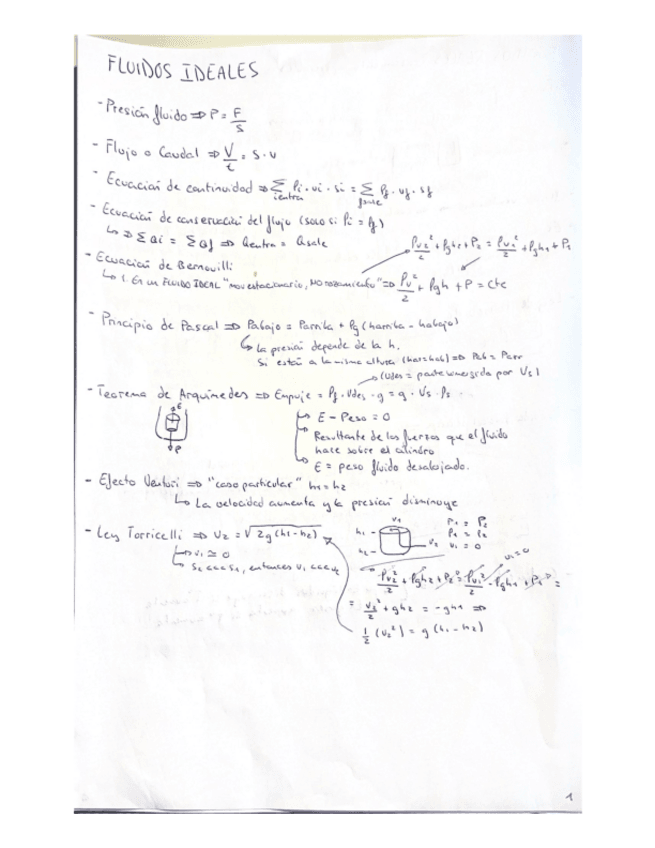 FLUIDOS IDEALES
- Presión fluido ⇒ P = F/S
- Flujo o Caudal ⇒ V/t = S · v
- Ecuación de continuidad ⇒ Σ ientra ρi · vi · si = Σ fsale ρf · vf · sf
- Ecuación de conservación del flujo (solo si ρi = ρf)
↳ ⇒ ΣQi = ΣQf ⇒ Qentra = Qsale
ρv2²/2 + ρgh2 + P2 = ρv1²/2 + ρgh1 + P1
- Ecuación de Bernouilli
↳ 1. En un FLUIDO IDEAL "mov estacionario, NO rozamiento" ⇒ ρv²/2 + ρgh + P = cte
- Principio de Pascal ⇒ Pabajo = Parriba + ρg (harriba - habajo)
↳ La presión depende de la h.
Si están a la misma altura (har=hab) ⇒ Pab = Parr
(Vdes = parte sumergida por Vs)
- Teorema de Arquímedes ⇒ Empuje = ρf · Vdes · g = g · Vs · ρs
E
P
↳ E - Peso = 0
↳ Resultante de las fuerzas que el fluido
hace sobre el cilindro
↳ E = peso fluido desalojado.
- Efecto Venturi ⇒ "caso particular" h1 = h2
↳ La velocidad aumenta y la presión disminuye
- Ley Torricelli ⇒ v2 = √2g(h1-h2)
↳ v1 ≃ 0
↳ S2 <<< S1, entonces v1 <<< v2
v1
h1 -
h2 -
v2
P1 = P2
ρ1 = ρ2
v1 = 0
v1 = 0
ρv2²/2 + ρgh2 + P2 = ρv1²/2 - ρgh1 + P1 =
= v2²/2 + gh2 = -gh1 ⇒
1/2 (v2²) = g (h1 - h2)
1